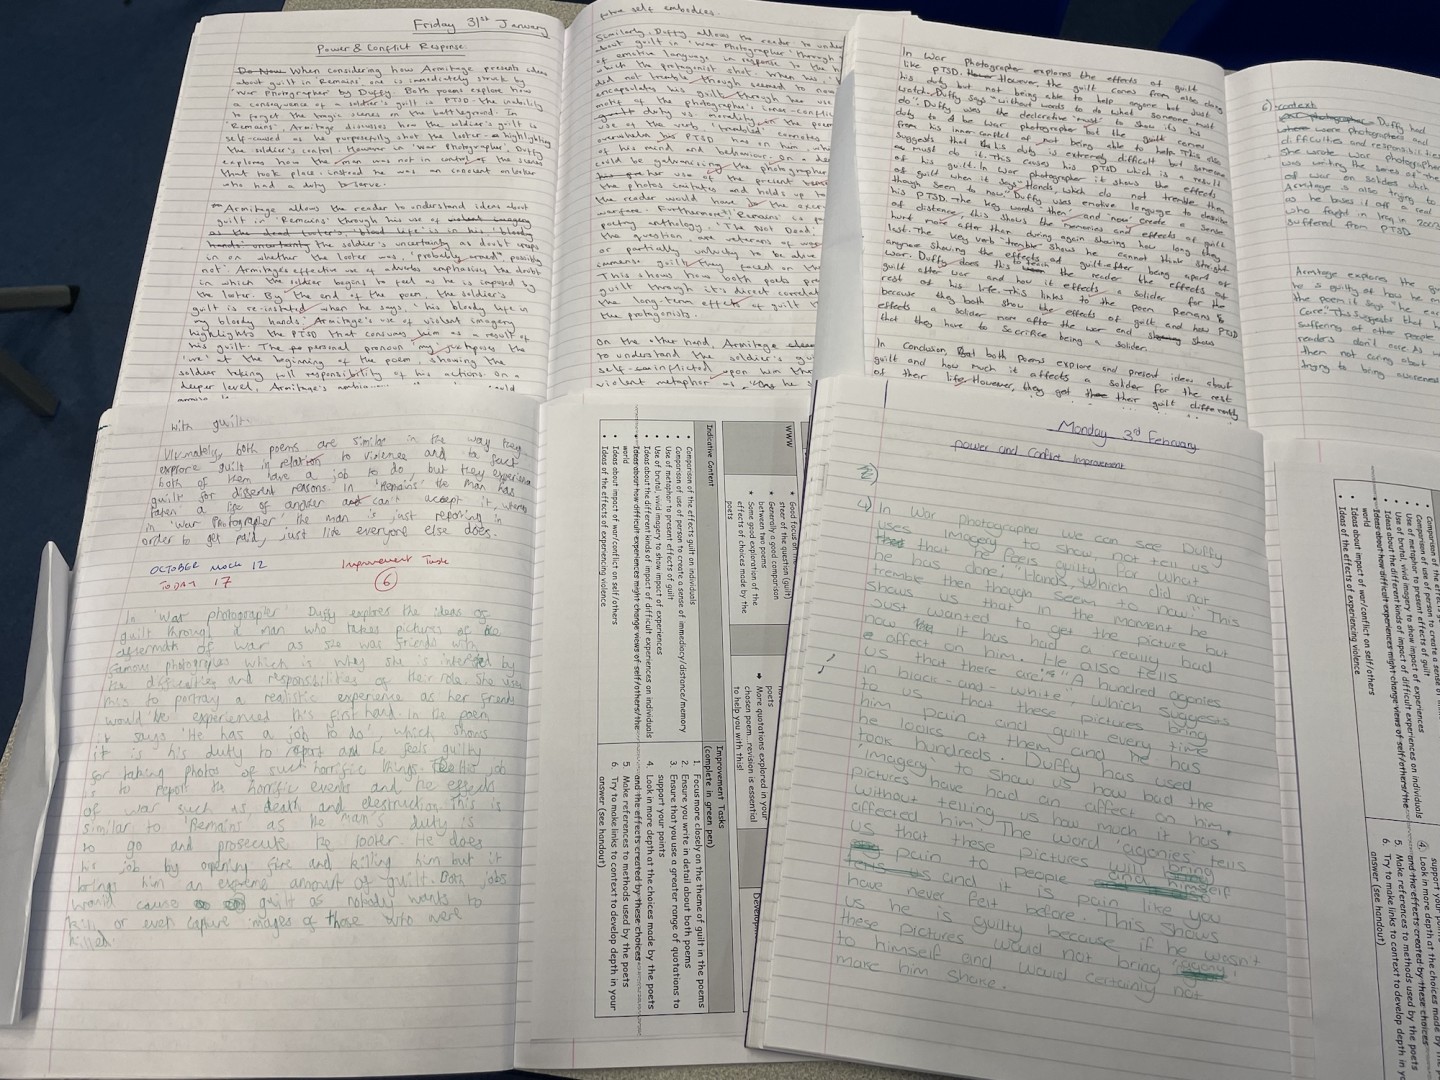 Friday 31st January
Power & Conflict Response
When considering how Armitage presents ideas
about guilt in Remains, one is immediately struck by
'War Photographer' by Duffy. Both poems explore how
a consequence of a soldier's guilt is PTSD - the inability
to forget the tragic scenes in the battleground. In
'Remains', Armitage discusses how the soldier's guilt is
self-caused as he purposefully shot the looter - highlighting
the soldier's control. However in 'War Photographer', Duffy
explores how the man was not in control of the scenes
that took place, instead he was an innocent onlooker
who had a duty to serve.
Armitage allows the reader to understand ideas about
guilt in 'Remains' through his use of violent imagery
the soldier's uncertainty as doubt
in on whether the looter was, "probably armed, possibly
not". Armitage's effective use of adverbs emphasises the doubt
in which the soldier begins to feel as he is
the looter. By the end of the poem, the soldier's
guilt is when he says: 'his bloody life in
my bloody hands'. Armitage's use of violent imagery
highlights the PTSD that consumes him as a result of
his guilt. The personal pronoun 'my' juxtaposes the
'we' at the beginning of the poem, showing the
soldier taking full responsibility of his actions. On a
deeper level, Armitage's could
future self embodies.
Similarly, Duffy allows the reader to
about guilt in 'War Photographer' through
of emotive language in response to the
which the protagonist shot. When his
did not tremble though seemed to now
encapsulates his guilt through her use
motif of the photographer's inner-conflict
duty vs. morality in the poem
use of the verb 'trembled' connotes
PTSD has on him
of his mind and behaviour. On a
could be the photographer
her use of the present
the photos imitates and holds up to
the reader would have to the
warfare. Furthermore, 'Remains' is
poetry anthology, 'The Not Dead'
the question are veterans of war
or partially, unlucky to be alive
immense guilt they faced on
This shows how both poets
guilt through it's direct
the long-term effects of guilt
the protagonists.
On the other hand, Armitage
to understand the soldier's
self-inflicted upon him
violent metaphor
In War Photographer explores the effects of guilt
like PTSD. However the guilt comes from also doing
his duty but not being able to help anyone but just
watch. Duffy says "without words to do what someone must
do". Duffy uses the declarative 'must' to show its his
duty to be war photographer but the guilt
from his inner conflict of not being able to help. This also
suggests that his duty is extremely difficult but someone
must do it. This causes his PTSD which is a result
of his guilt. In war photographer it shows the effects
of guilt when it says "Hands, which do not tremble then
though seem to now". Duffy uses emotive language to describe
his PTSD. The key words 'then' and 'now' create a sense
of distance, this shows the memories and effects of guilt
hurt more after than during again showing how long they
last. The key verb 'tremble' shows he cannot think straight
anymore showing the effects of guilt after being apart of
war. Duffy does this to teach the reader the effects of
guilt after war and how it effects a solider for the
rest of his life. This links to the poem Remains
because they both show the effects of guilt and how PTSD
effects a solider more after the war end shows
that they have to sacrifice being a solider.
In Conclusion, both Poems explore and present ideas about
guilt and how much it affects a solder for the rest
of their life. However, they get their guilt differently
6) context
Duffy had
were photographers and
difficulties and responsibilities
She wrote War photographer
was writing the
of war on soldies which
Armitage is also trying to
as he bases it off a real
who fought in Iraq in 2003
suffered from PTSD
Armitage explores the
he is guilty of how he
the poem it says "The
Care." This suggests that
suffering of other people
readers don't care. As
then not caring about
trying to bring awareness
with guilt.
Ultimately, both poems are similar in the way they
explore guilt in relation to violence and in fact
both of them have a job to do, but they experience
guilt for different reasons. In 'Remains' the man has
taken a life of another and can't accept it, where
in 'War Photographer' the man is just reporting in
order to get paid, just like everyone else does.
OCTOBER MOCK 12
TODAY 17
Improvement Task
6
In 'War photographer' Duffy explores the ideas of
guilt through a man who takes pictures of the
aftermath of war as she was friends with
famous photographers which is why she is interested by
the difficulties and responsibilities of their role. She uses
this to portray a realistic experience as her friends
would've experienced this first hand. In the poem,
it says 'He has a job to do' which shows
it is his duty to report and he feels guilty
for taking photos of such horrific things. job
is to report the horrific events and the effects
of war such as death and destruction. This is
similar to 'Remains' as the man's duty is
to go and prosecute the looter. He does
his job by opening fire and killing him but it
brings him an extreme amount of guilt. Both jobs
would cause guilt as nobody wants to
kill or even capture images of those who were
killed.
WWW
Good focus on the
steer of the question (guilt)
Generally a good comparison
between two poems
Some good exploration of the
effects of choices made by the
poets
poets
More quotations explored in your
chosen poem...revision is essential
to help you with this!
Indicative Content
Comparison of the effects guilt on individuals
Comparison of use of person to create a sense of immediacy/distance/memory
Use of metaphor to present effects of guilt
Use of brutal, vivid imagery to show impact of experiences
Ideas about the different kinds of impact of difficult experiences on individuals
Ideas about how difficult experiences might change views of self/others/the
world
Ideas about impact of war/conflict on self/others
Ideas of the effects of experiencing violence
Improvement Tasks
(complete in green pen)
1. Focus more closely on the theme of guilt in the poems
2. Ensure you write in detail about both poems
3. Ensure that you use a greater range of quotations to
support your points
4. Look in more depth at the choices made by the poets
and the effects created by these choices
5. Make references to methods used by the poets
6. Try to make links to context to develop depth in your
answer (see handout)
Monday 3rd February
power and Conflict Improvement
4) In War photographer we can see Duffy
uses imagery to show, not tell us
that he feels guilty for what
he has done; "Hands, which did not
tremble then though seem to now". This
shows us that in the moment he
just wanted to get the picture but
now it has had a really bad
affect on him. He also tells
us that there are: "A hundred agonies
in black-and-white" Which suggests
to us that these pictures bring
him pain and guilt every time
he looks at them and he has
took hundreds. Duffy has used
'imagery' to show us how bad the
pictures have had an affect on him,
without telling us how much it has
affected him. The word 'agonies' tells
us that these pictures will bring
pain to people and himself
and it is pain like you
have never felt before. This shows
us he is guilty because if he wasn't
these pictures would not bring 'agony'
to himself and would certainly not
make him shake.
Comparison of use of person to create a sense of
Use of metaphor to present effects of guilt
Use of brutal, vivid imagery to show impact of experiences
Ideas about the different kinds of impact of difficult experiences on individuals
Ideas about how difficult experiences might change views of self/others/the
world
Ideas about impact of war/conflict on self/others
Ideas of the effects of experiencing violence
support your
4. Look in more depth at the choices made by the
and the effects created by these choices
5. Make references to methods used by the poets
6. Try to make links to context to develop depth in
answer (see handout)